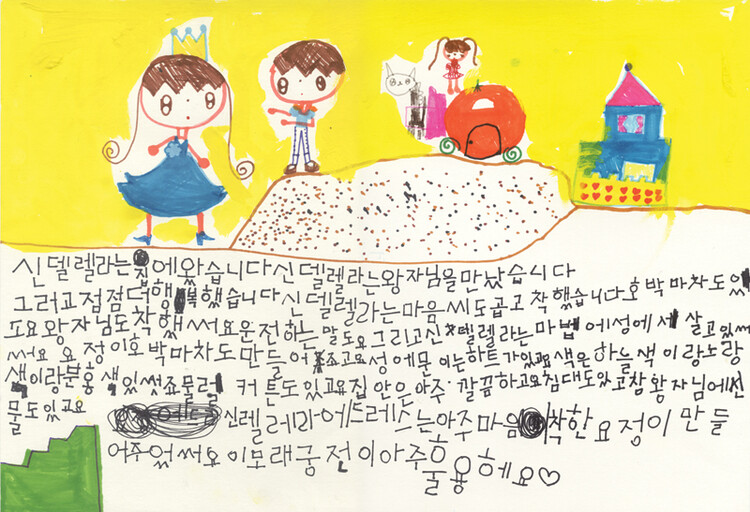 신델렐라는 집에왔습니다신델렐라는왕자님을만났습니다
그러고점점더행복했습니다신델렐라는마음씨도곱고 착했습니다호박마차도있
도요왕자님도착했써요운전하는 말도요그리고신델렐라는마법에성에세 살고있써
써요 요정이호박마차도만들어죠고요성에문이는하트가있고요색은하늘색이랑노랑
색이랑분홍색있썻죠물럴 커튼도있고요집안은아주깔끔하고요침대도있고참왕자님에선
물도있고요 신렐렐라에드레스는아주마음착한요정이만들
아주었써요이모래궁전이아주훌
룽헤요♡